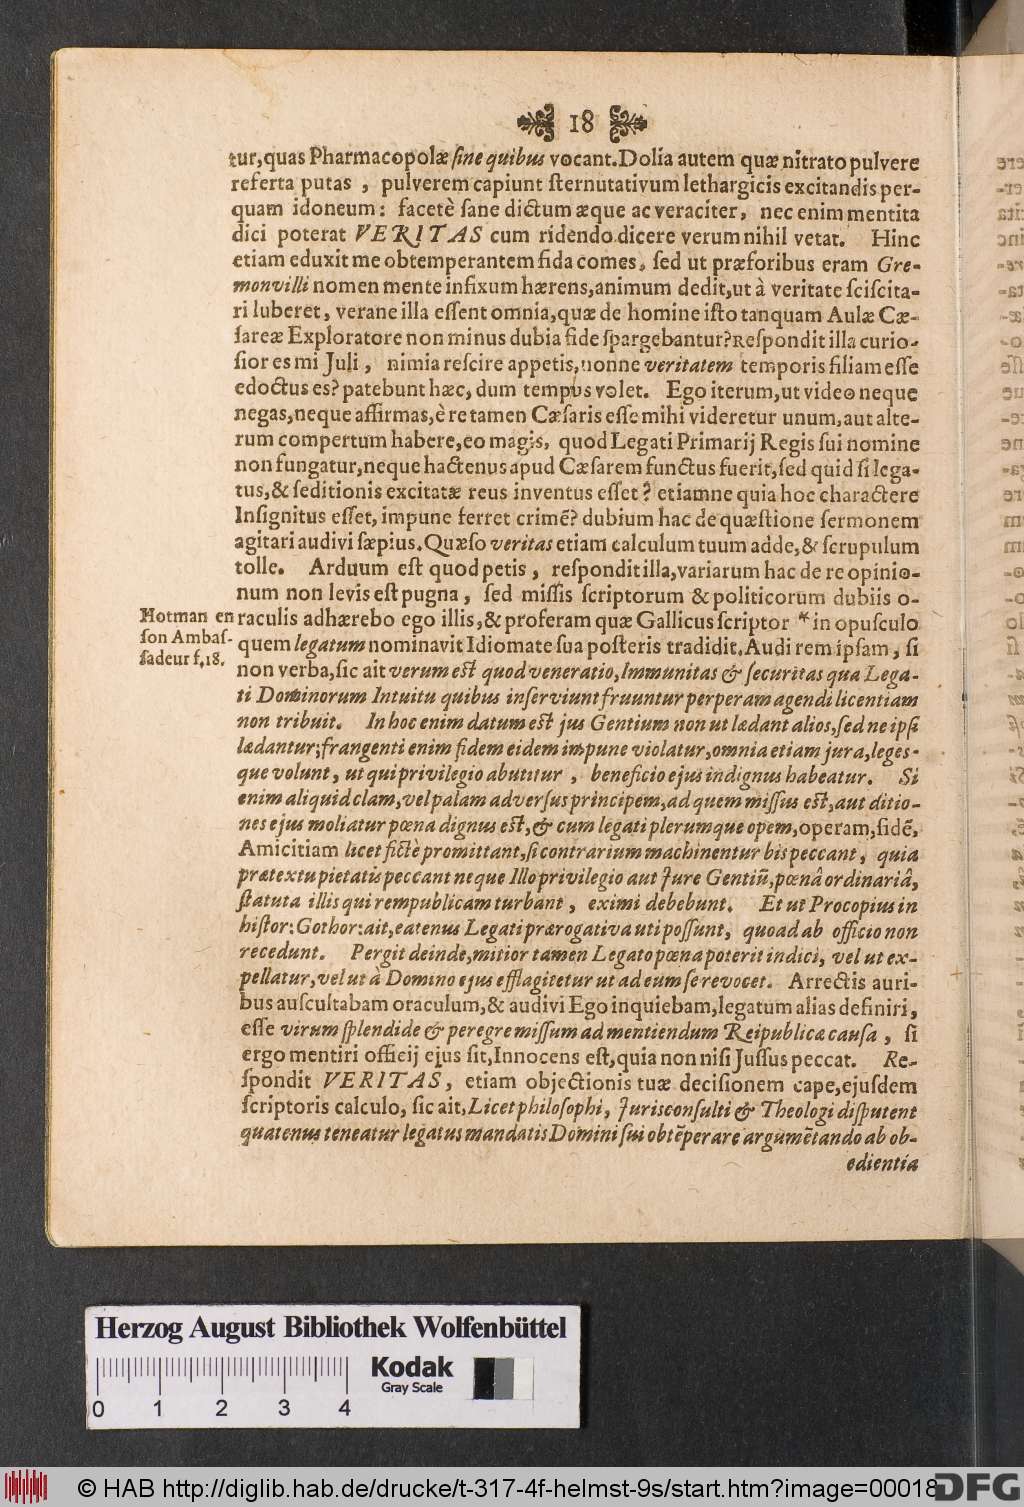 18
tur, quas Pharmacopolæ ſine quibus vocant. Dolia autem quæ nitrato pulvere
referta putas , pulverem capiunt ſternutativum lethargicis excitandis per-
quam idoneum: facetè ſane dictum æque ac veraciter, nec enim mentita
dici poterat VERITAS cum ridendo dicere verum nihil vetat. Hinc
etiam eduxit me obtemperantem fida comes, ſed ut præforibus eram Gre-
monvilli nomen mente infixum hærens, animum dedit, ut à veritate ſciſcita-
ri luberet, verane illa eſſent omnia, quæ de homine iſto tanquam Aulæ Cæ-
ſareæ Exploratore non minus dubia fide ſpargebantur? Reſpondit illa curio-
ſior es mi Juli , nimia reſcire appetis, nonne veritatem temporis filiam eſſe
edoctus es? patebunt hæc, dum tempus volet. Ego iterum, ut video neque
negas, neque affirmas, è re tamen Cæſaris eſſe mihi videretur unum, aut alte-
rum compertum habere, eo magis, quod Legati Primarij Regis ſui nomine
non fungatur, neque hactenus apud Cæſarem functus fuerit, ſed quid ſi lega-
tus, & ſeditionis excitatæ reus inventus eſſet? etiamne quia hoc charactere
Inſignitus eſſet, impune ferret crimẽ? dubium hac de quæſtione ſermonem
agitari audivi ſæpius. Quæſo veritas etiam calculum tuum adde, & ſcrupulum
tolle. Arduum eſt quod petis , reſpondit illa, variarum hac de re opinio-
num non levis eſt pugna , ſed miſſis ſcriptorum & politicorum dubiis o-
raculis adhærebo ego illis, & proferam quæ Gallicus ſcriptor * in opuſculo
Hotman en
ſon Ambaſ-
ſadeur f. 18.
quem legatum nominavit Idiomate ſua poſteris tradidit. Audi rem ipſam, ſi
non verba, ſic ait verum eſt quod veneratio, Immunitas & ſecuritas qua Lega-
ti Dominorum Intuitu quibus inſerviunt fruuntur perperam agendi licentiam
non tribuit. In hoc enim datum eſt jus Gentium non ut lædant alios, ſed ne ipſi
lædantur; frangenti enim fidem eidem impune violatur, omnia etiam jura, leges-
que volunt, ut qui privilegio abutitur , beneficio ejus indignus habeatur. Si
enim aliquid clam, vel palam adverſus principem, ad quem miſſus eſt, aut ditio-
nes ejus moliatur pœna dignus eſt, & cum legati plerumque opem, operam, fidẽ,
Amicitiam licet fictè promittant, ſi contrarium machinentur bis peccant, quia
prætextu pietatis peccant neque Illo privilegio aut Jure Gentiũ, pœnâ ordinariâ,
ſtatuta illis qui rempublicam turbant, eximi debebunt. Et ut Procopius in
hiſtor: Gothor: ait, eatenus Legati prærogativa uti poſſunt, quoad ab officio non
recedunt. Pergit deinde, mitior tamen Legato pœna poterit indici, vel ut ex-
pellatur, vel ut à Domino ejus efflagitetur ut ad eum ſe revocet. Arrectis auri-
bus auſcultabam oraculum, & audivi Ego inquiebam, legatum alias definiri,
eſſe virum ſplendide & peregre miſſum ad mentiendum Reipublicæ cauſa , ſi
ergo mentiri officij ejus ſit, Innocens eſt, quia non niſi Juſſus peccat. Re-
ſpondit VERITAS, etiam objectionis tuæ deciſionem cape, ejuſdem
ſcriptoris calculo, ſic ait, Licet philoſophi, Jurisconſulti & Theologi diſputent
quatenus teneatur legatus mandatis Domini ſui obtẽperare argumẽtando ab ob-
edientia
Herzog August Bibliothek Wolfenbüttel
Kodak
Gray Scale
0 1 2 3 4
© HAB http://diglib.hab.de/drucke/t-317-4f-helmst-9s/start.htm?image=00018
DFG